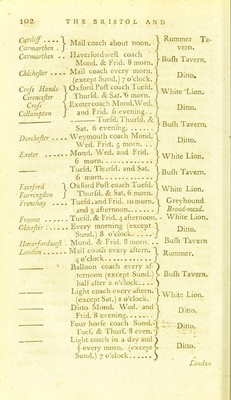 102 THE BRISTOL AND
Cardiff .... } Mail coach about noon. } Rummer Ta-
Carmarthen . } vern.
Carmarthen .. Haverfordwest coach
Mond. & Frid. 8 morn. } Bush Tavern,
Chichester .... Mail coach every morn.
(except Sund.) 7 o'clock. } Ditto,
Cross Hands } Oxford Post coach Tuesd. } White Lion.
Cirencester } Thursd. & Sat. 6 morn.
Cross } Exeter coach Mond. Wed. } Ditto.
Collumpton } and Frid. 6 evening.
—— Tuesd. Thursd. &
Sat. 6 evening. } Bush Tavern,
Dorchester ... Weymouth coach Mond.
Wed. Frid. 5 morn. } Ditto,
Exeter ..... Mond. Wed. and Frid.
6 morn. } White Lion.
—— Tuesd. Thursd. and Sat.
6 morn. } Bush Tavern,
Fairford } Oxford Post coach Tuesd. } White Lion.
Farrington } Thursd. & Sat. 6 morn.
Frenchay ... Tuesd. and Frid. 10 morn. } Greyhound
and 5 afternoon. } Broad-mead.
Froome ..... Tuesd. & Frid. 4 afternoon. - White Lion.
Glocester ..... Every morning (except
Sund.) 8 o'clock. } Ditto,
Haverfordwest . Mond. & Frid. 8 morn. .. Bush Tavern
London ..... Mail coach every aftern.
4 o'clock } Rummer,
—— Balloon coach every af-
ternoon (except Sund.) } Bush Tavern.
half after 2 o'clock
—— Light coach every aftern.
(except Sat.) 2 o'clock. } White Lion.
—— Ditto Mond. Wed. and
Frid. 8 evening. } Ditto,
—— Four horse coach Sund.
Tues. & Thurs. 8 even. } Ditto,
—— Light coach in a day and
every morn. (except } Ditto.
Sund.) 7 o'clock
London